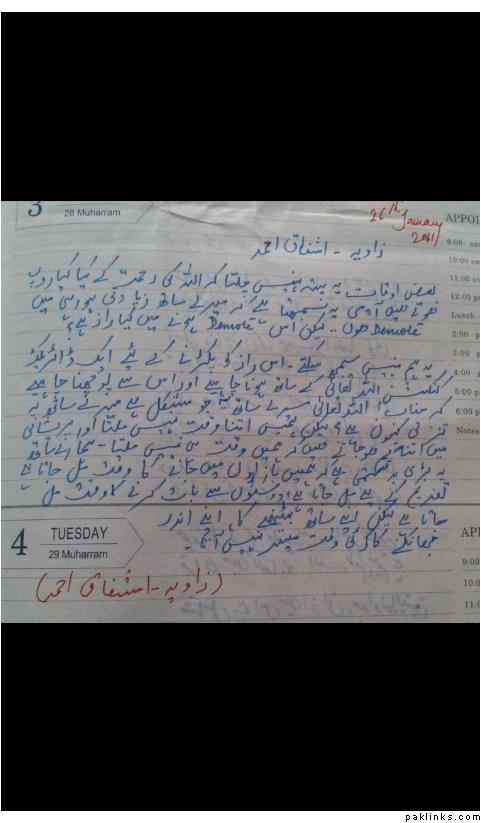 3
28 Muharram
26th January 2011
APPOI
زاویہ - اشفاق احمد
9:00 am
10:00 am
11:00 am
12:00 p
Lunch
2:00 p
3:00 p
4:00
5:00 p
6:00 p
Notes
بعض اوقات یہ پتہ نہیں چلتا کہ اللہ کی رحمت کے کیا کیا روپ
ہوتے ہیں آدمی یہ سمجھتا ہے کہ میرے ساتھ زیادتی ہو رہی میں
Demote ہوں - لیکن اس "Demote" ہونے میں کیا راز ہے؟
یہ ہم نہیں سمجھ سکتے - اس راز کو پکڑنے کے لئے ایک ڈائریکٹ
کنکشن اللہ تعالیٰ کے ساتھ ہونا چاہیے اور اس سے پوچھنا چاہیے
کہ جناب! اللہ تعالیٰ میرے ساتھ یہ جو مشکل ہے میرے ساتھ یہ
تنزلی کیوں ہے؟ لیکن ہمیں اتنا وقت ہی نہیں ملتا اور پریشانی
میں اتنے ہو جاتے ہیں کہ ہمیں وقت ہی نہیں ملتا - ہمارے ساتھ
یہ بڑی بدقسمتی ہے کہ ہمیں بازاروں میں جانے کا وقت مل جاتا ہے
تفریح کے لیے مل جاتا ہے، دوستوں سے بات کرنے کا وقت مل
جاتا ہے لیکن اپنے ساتھ بیٹھنے کا اپنے اندر
جھانکنے کا کوئی وقت میسر نہیں آتا۔
4
TUESDAY
29 Muharram
API
9:00
10:0
11:0
(زاویہ - اشفاق احمد)
paklinks.com